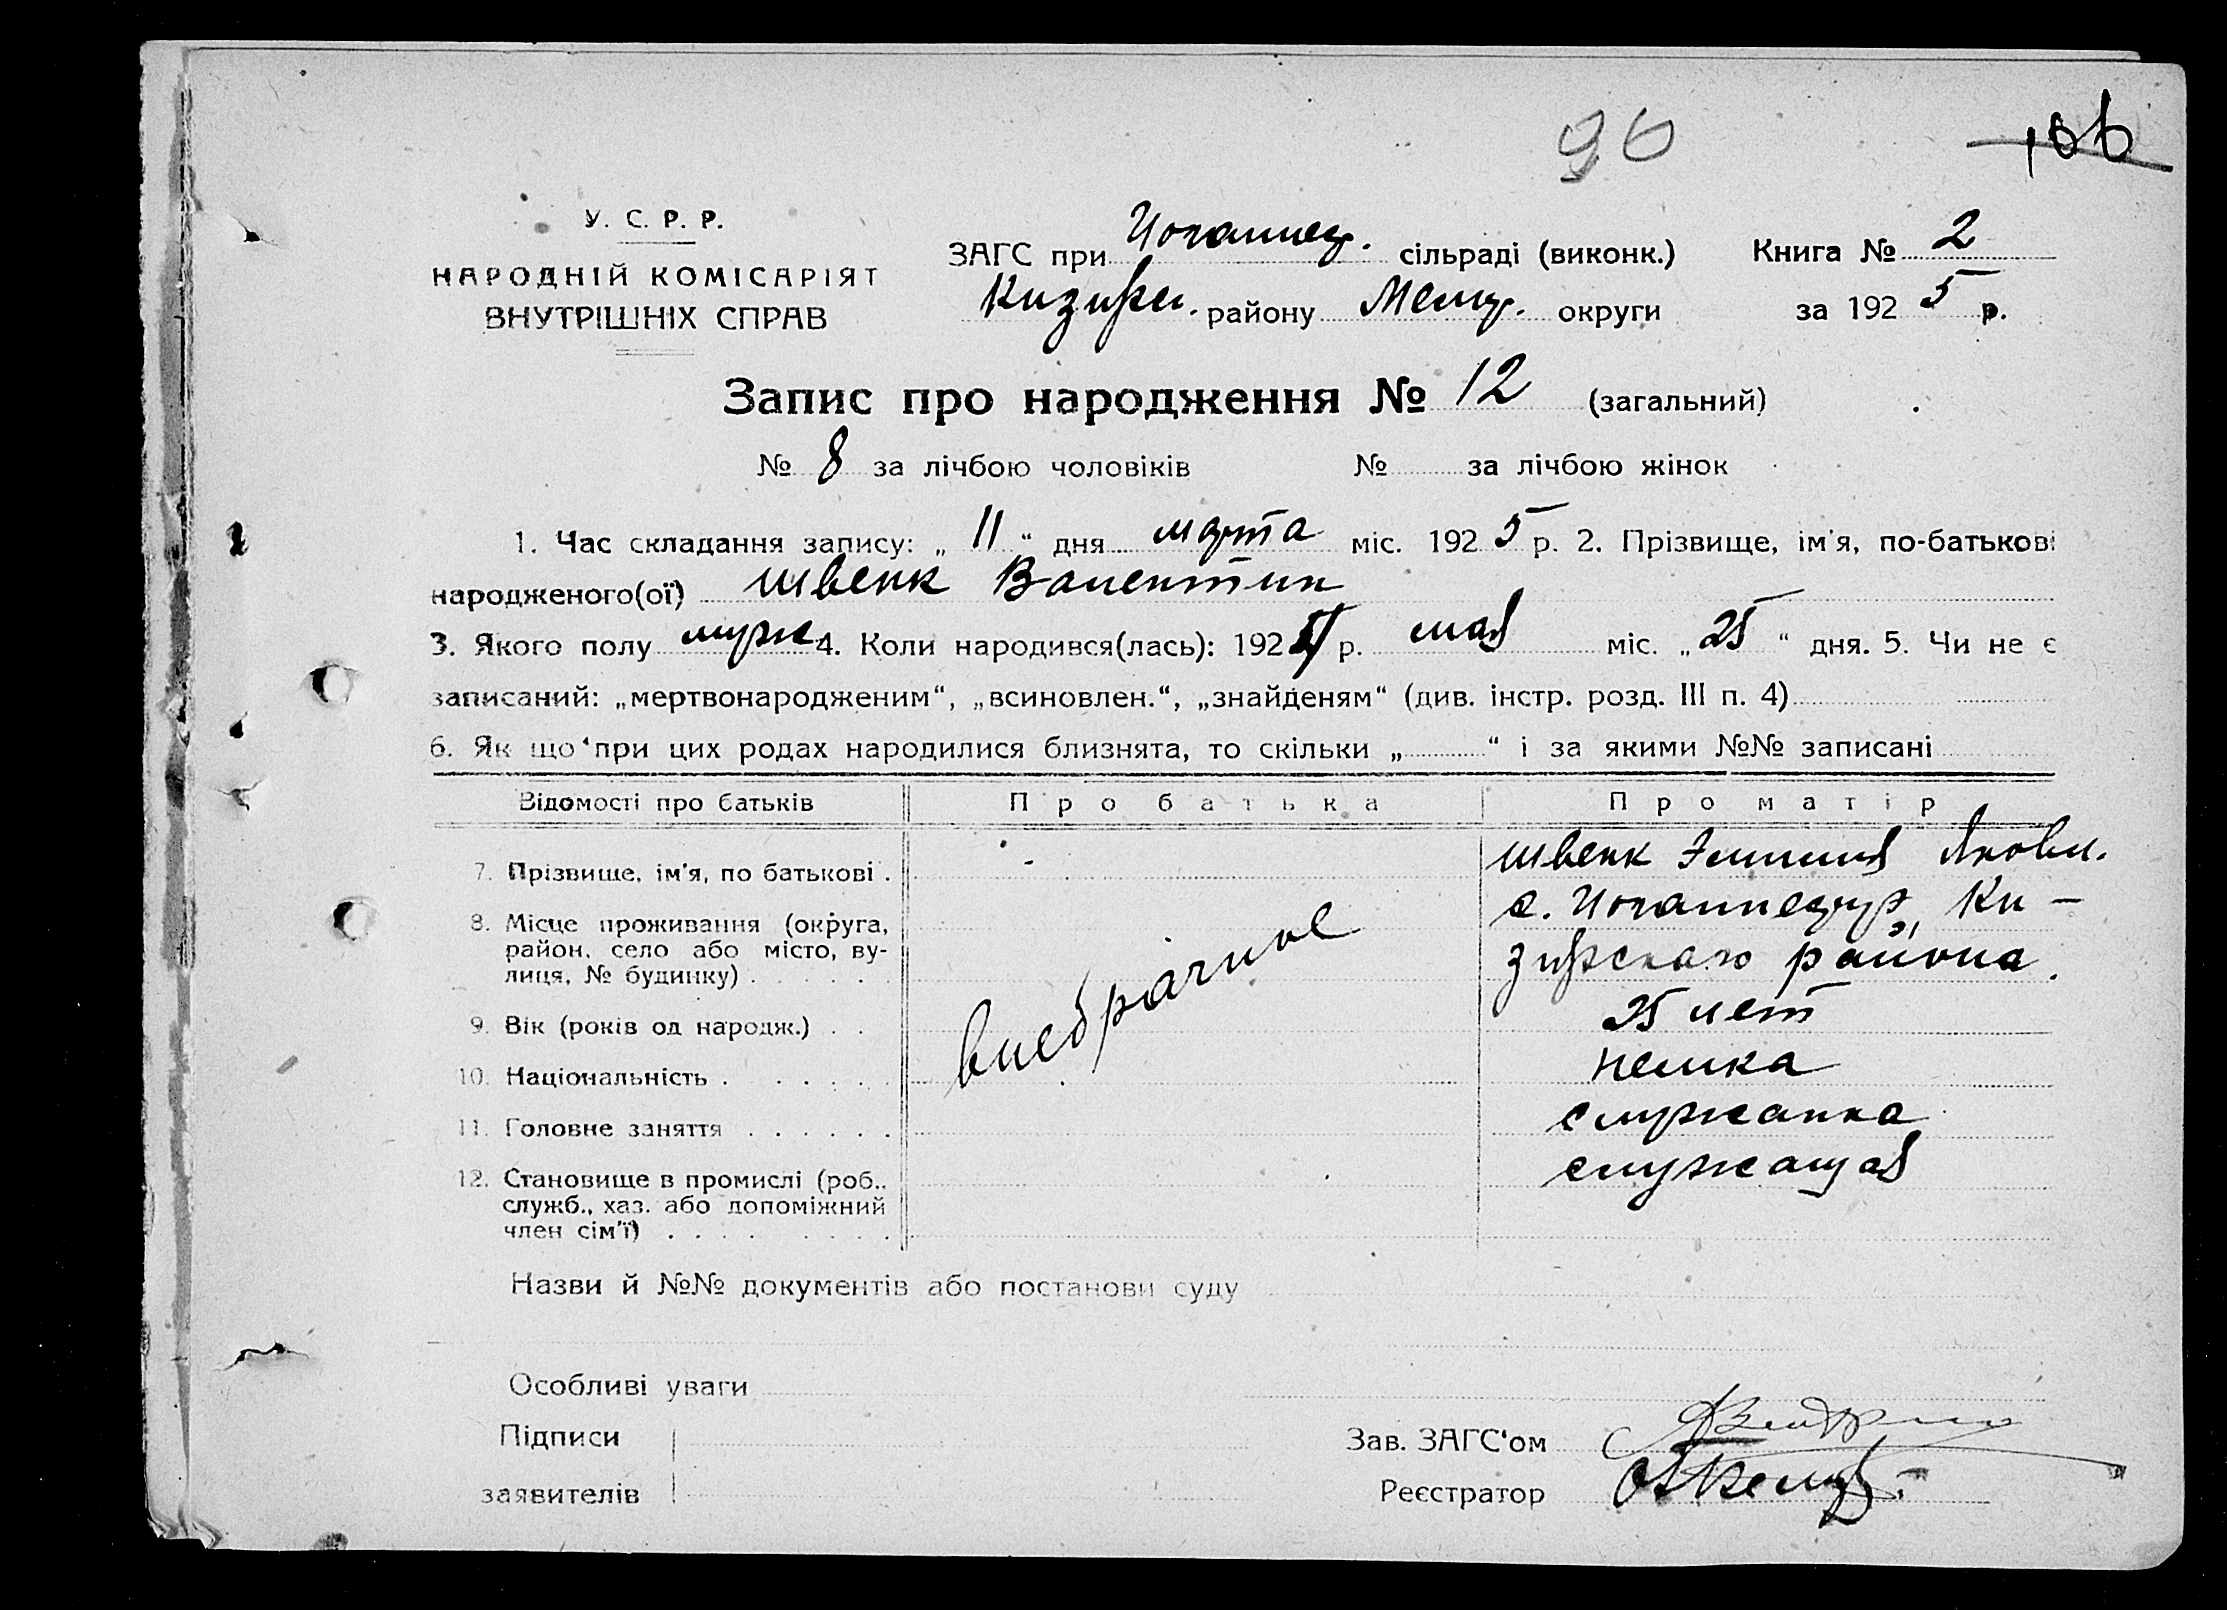 96
106
У. С. Р. Р.
НАРОДНІЙ КОМІСАРІЯТ
ВНУТРІШНІХ СПРАВ
ЗАГС при Иоганнез. сільраді (виконк.) Книга № 2
району округи за 1925 р.
Запис про народження № 12 (загальний)
№ 8 за лічбою чоловіків № за лічбою жінок
1. Час складання запису: „ 11 “ дня марта міс. 1925 р. 2. Прізвище, ім'я, по-батькові
народженого(ої) Швенк Валентин
3. Якого полу муж 4. Коли народився(лась): 192 р. мая міс. „ 25 “ дня. 5. Чи не є
записаний: „мертвонародженим“, „всиновлен.“, „знайденям“ (див. інстр. розд. III п. 4)
6. Як що при цих родах народилися близнята, то скільки „ “ і за якими №№ записані
Відомості про батьків Про батька Про матір
7. Прізвище, ім'я, по батькові . Швенк Эмилия Яковл.
8. Місце проживання (округа, район, село або місто, вулиця, № будинку) . с. Ки-
зирскаго района.
внебрачное
9. Вік (років од народж.) . . 25 лет
10. Національність . . . . . . немка
11. Головне заняття . . . . . . служанка
12. Становище в промислі (роб., служащая
служб., хаз. або допоміжний
член сім'ї) . . . . . . . .
Назви й №№ документів або постанови суду
Особливі уваги
Підписи
заявителів
Зав. ЗАГС'ом
Реєстратор